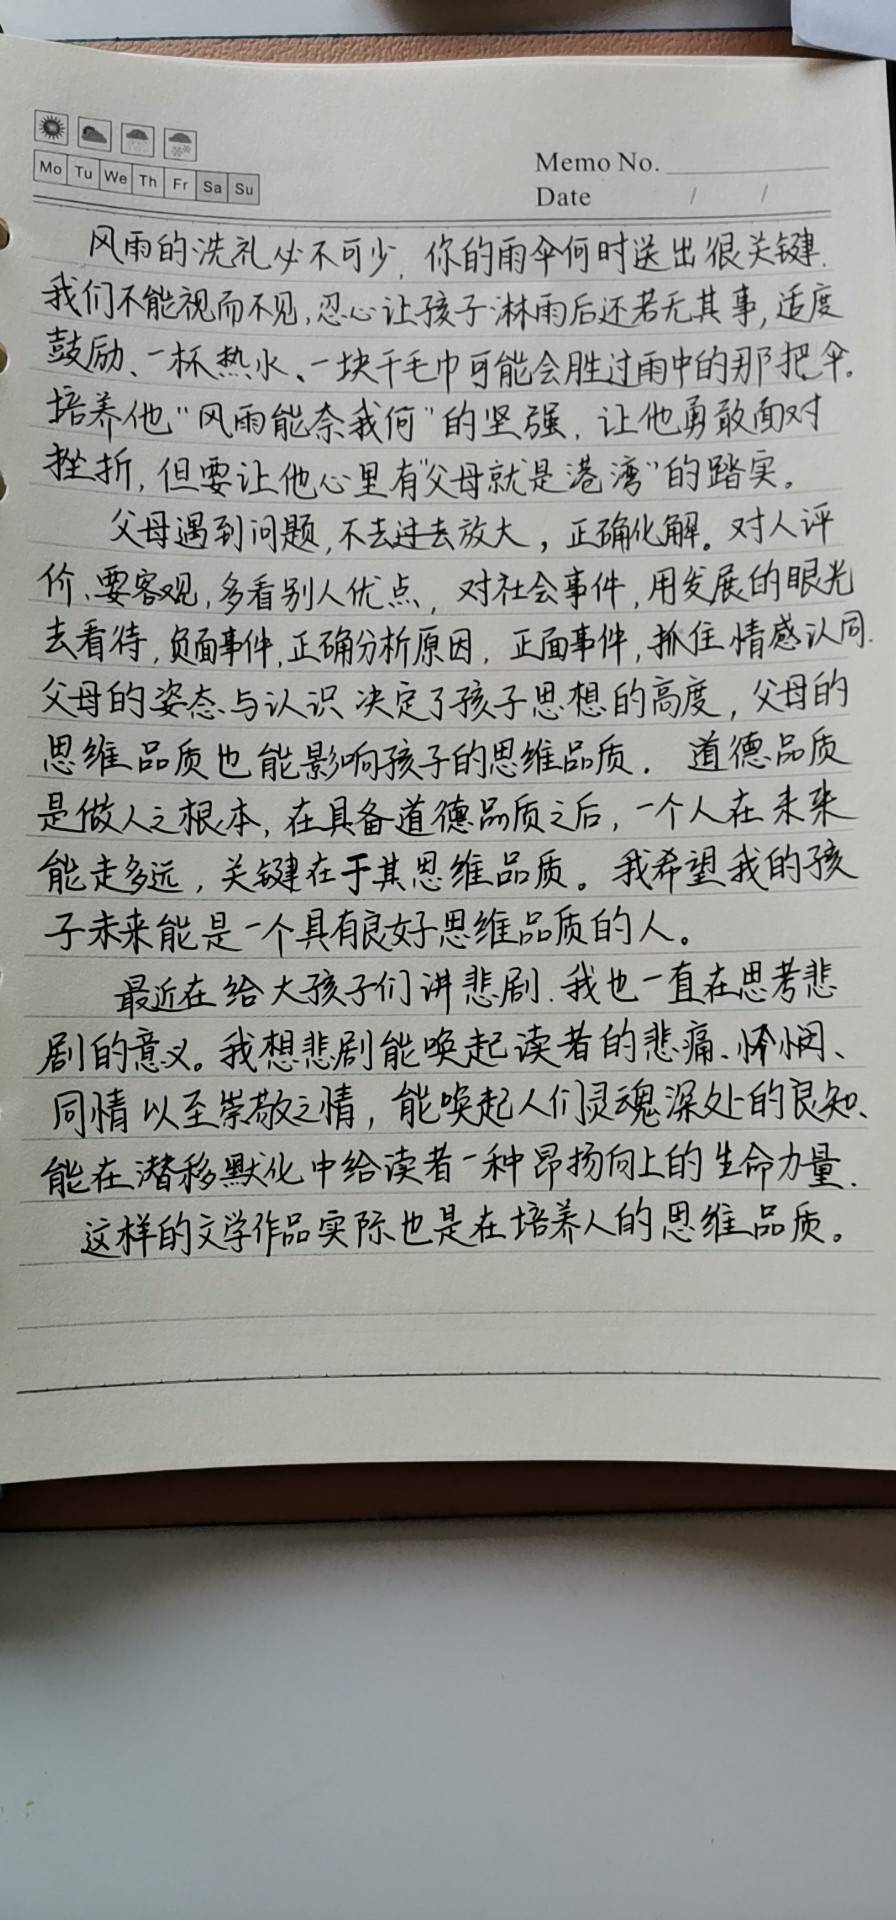 Mo Tu We Th Fr Sa Su
Memo No.
Date / /
风雨的洗礼必不可少,你的雨伞何时送出很关键.
我们不能视而不见,忍心让孩子淋雨后还若无其事,适度
鼓励、一杯热水、一块干毛巾可能会胜过雨中的那把伞。
培养他“风雨能奈我何”的坚强,让他勇敢面对
挫折,但要让他心里有“父母就是港湾”的踏实。
父母遇到问题,不去过去放大,正确化解。对人评
价、要客观,多看别人优点,对社会事件,用发展的眼光
去看待,负面事件,正确分析原因,正面事件,抓住情感认同.
父母的姿态与认识决定了孩子思想的高度,父母的
思维品质也能影响孩子的思维品质.道德品质
是做人之根本,在具备道德品质之后,一个人在未来
能走多远,关键在于其思维品质。我希望我的孩
子未来能是一个具有良好思维品质的人。
最近在给大孩子们讲悲剧.我也一直在思考悲
剧的意义。我想悲剧能唤起读者的悲痛、怜悯、
同情以至崇敬之情,能唤起人们灵魂深处的良知、
能在潜移默化中给读者一种昂扬向上的生命力量.
这样的文学作品实际也是在培养人的思维品质。